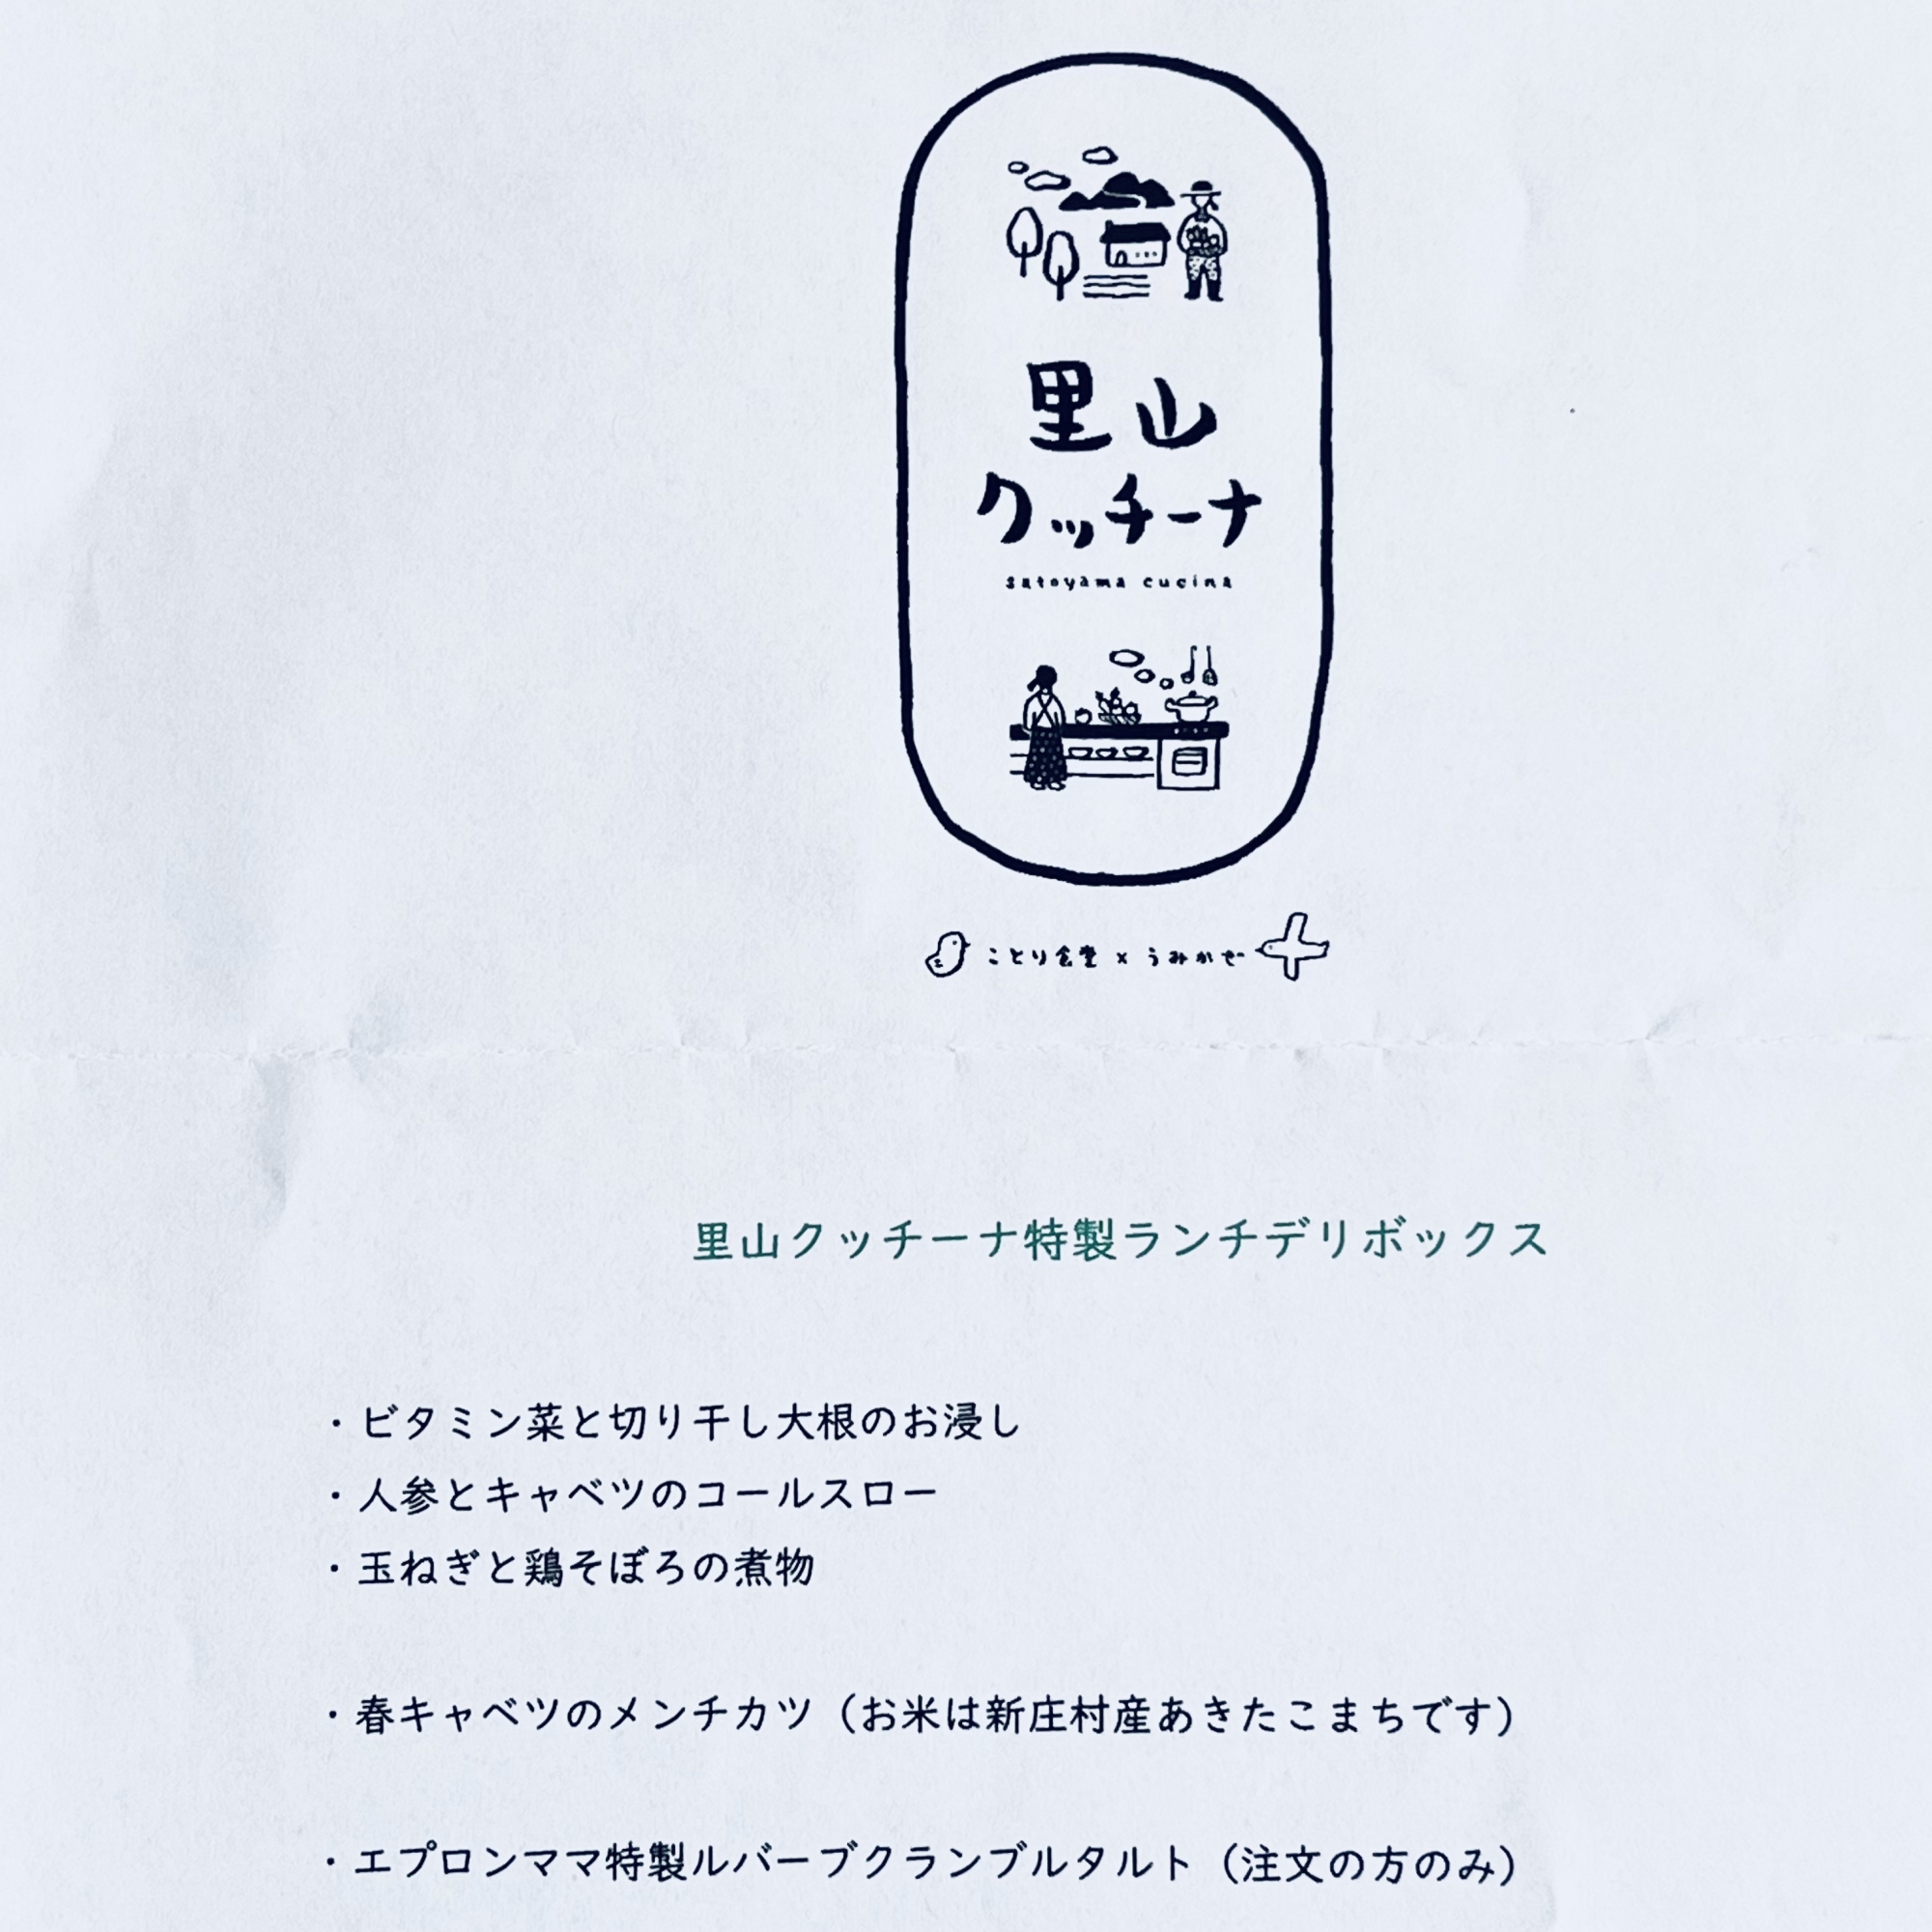 里山
クッチーナ
satoyama cucina
ことり食堂 × うみかぜ
里山クッチーナ特製ランチデリボックス
・ビタミン菜と切り干し大根のお浸し
・人参とキャベツのコールスロー
・玉ねぎと鶏そぼろの煮物
・春キャベツのメンチカツ（お米は新庄村産あきたこまちです）
・エプロンママ特製ルバーブクランブルタルト（注文の方のみ）